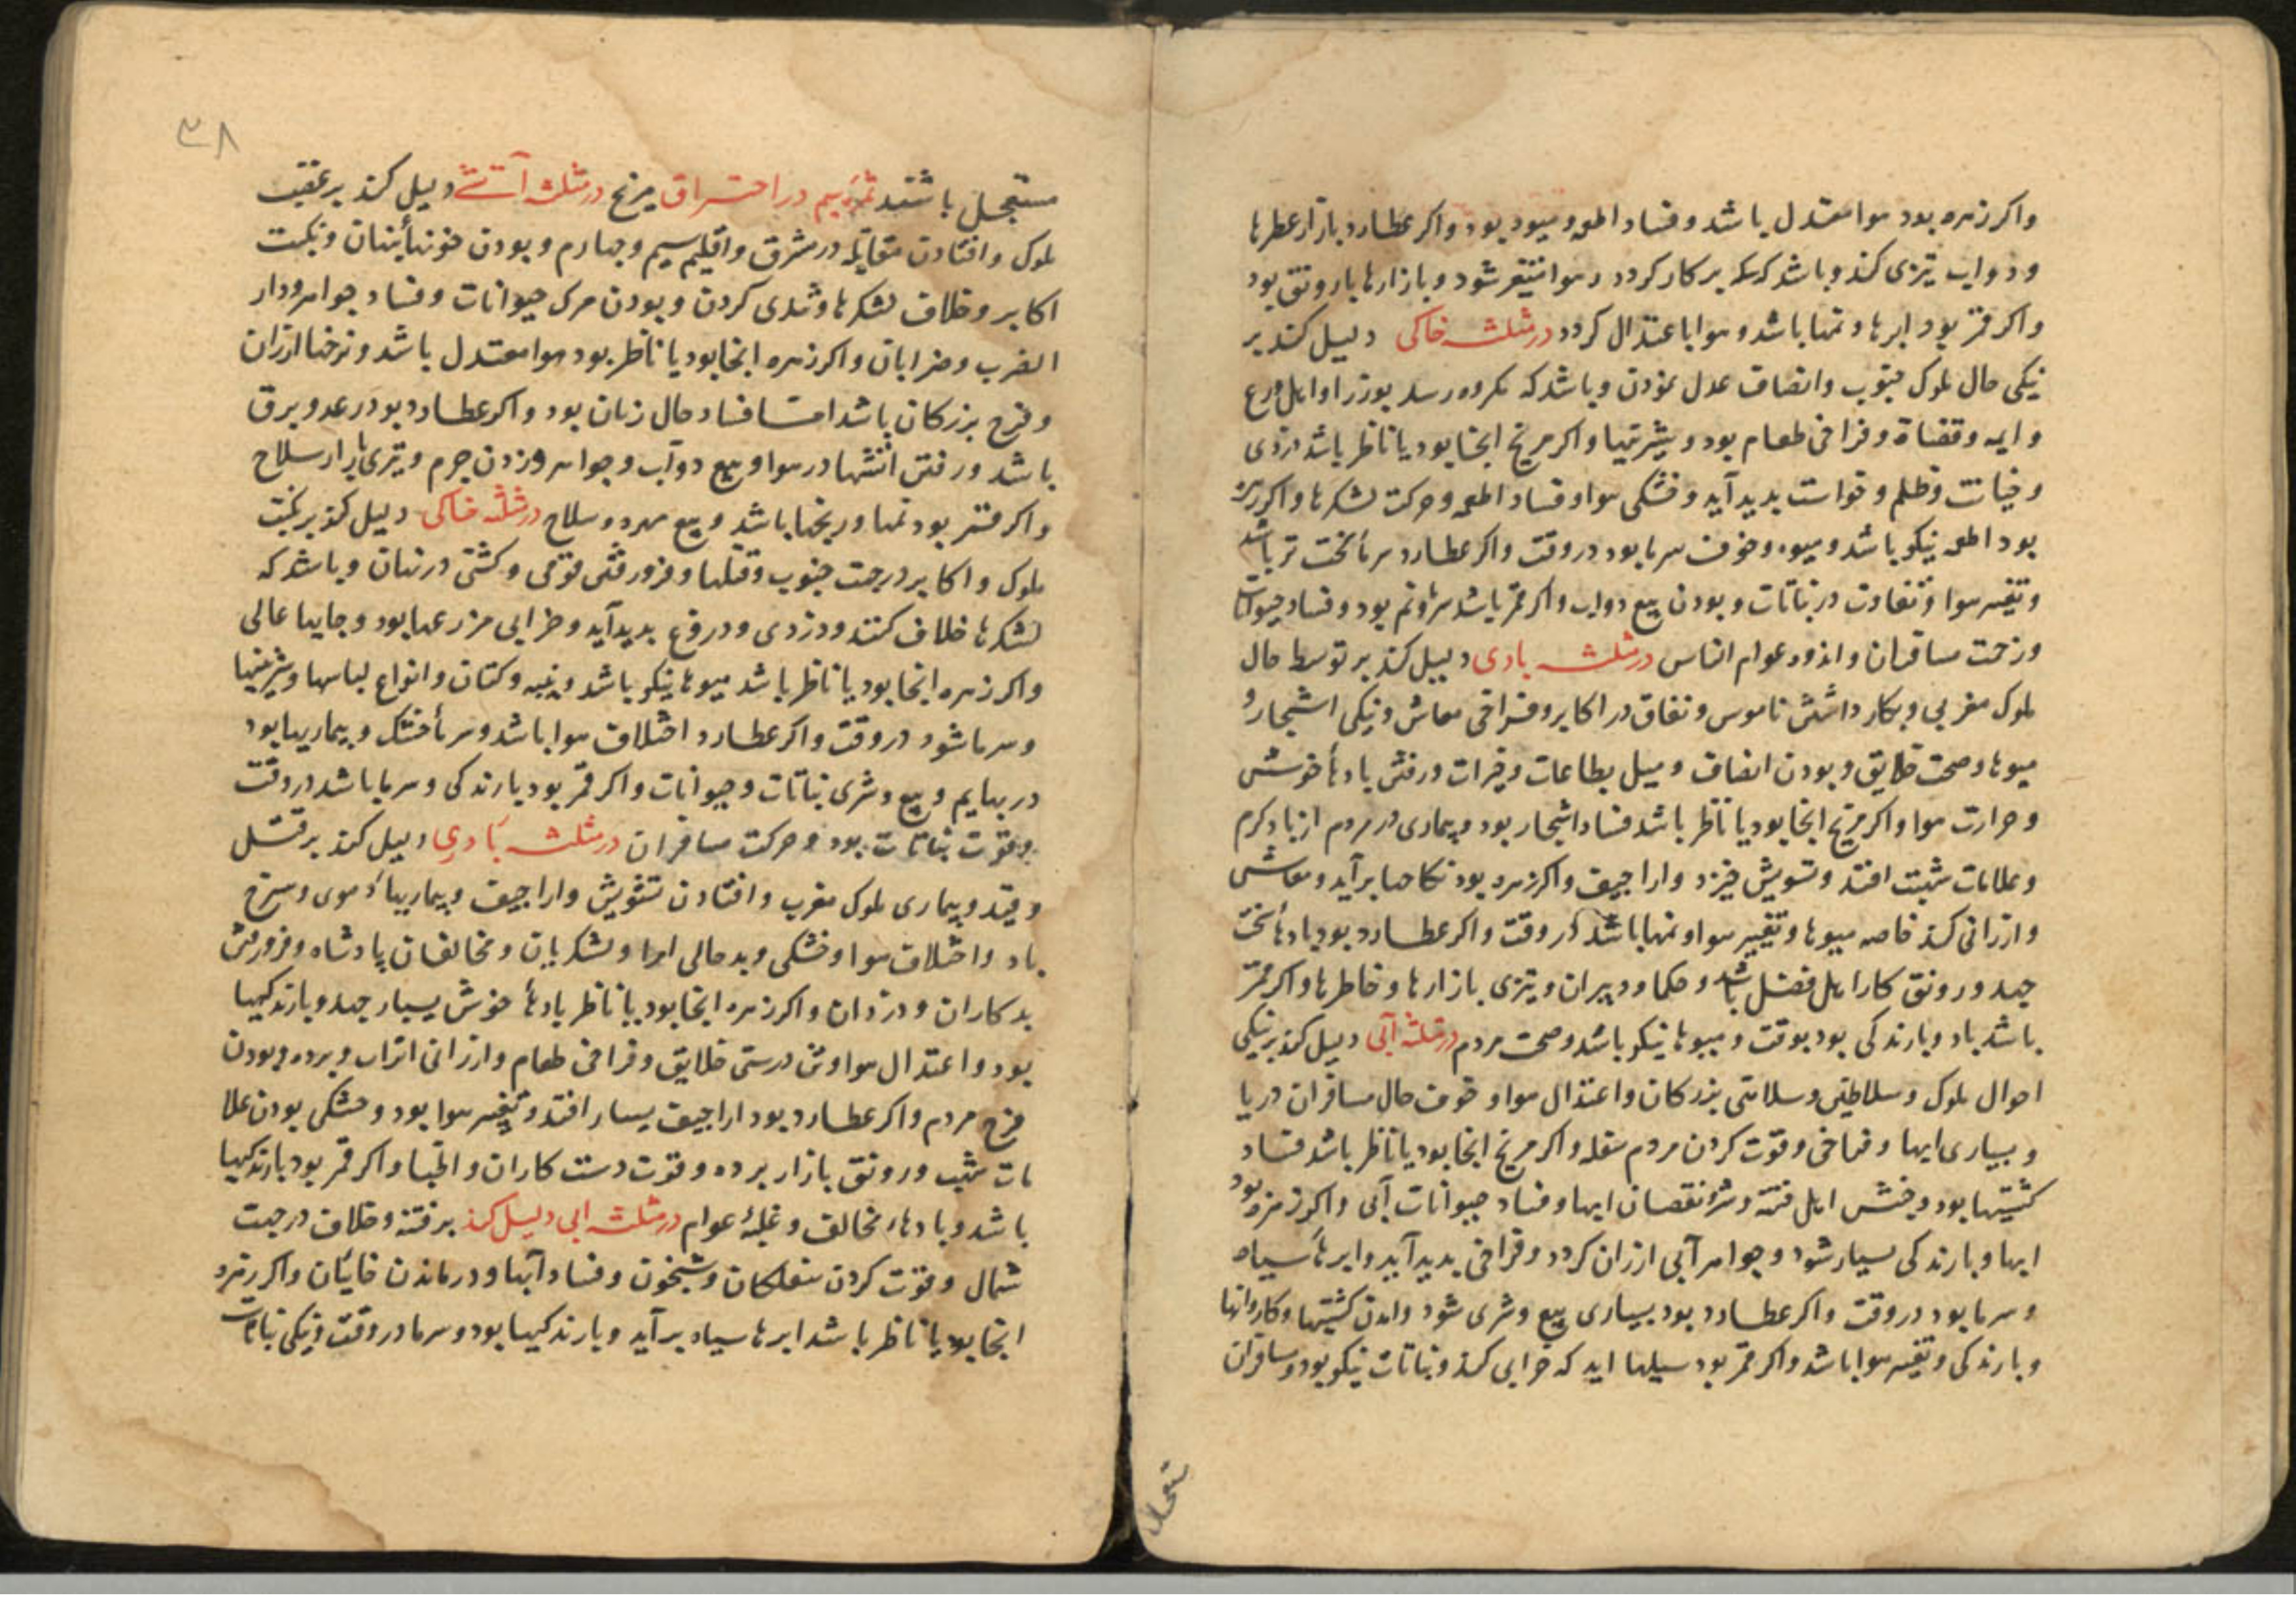 واکر زهره بود هوا معتدل باشد و فساد اطعمه و میوه بود و اکر عطارد بازار عطرها
و دواب تیزی کند و باشد که سکه بر کار کردد و هوا متغیر شود و بازارها با رونق بود
و اکر قمر بود ابرها و نمها باشد و هوا باعتدال کردد در مثلثه خاکی دلیل کند بر
نیکی حال ملوک جنوب و انصاف عدل نمودن و باشد که مکروه رسد بوزرا و اهل ورع
و ایمه و قضاة و فراخی طعام بود و شیرینیها و اکر مریخ انجا بود یا ناظر باشد دزدی
و خیانت و ظلم و بدید آید و خشکی هوا و فساد اطعمه و حرکت لشکرها و اکر زهره
بود اطعمه نیکو باشد و میوه و خوف سرما بود در وقت و اکر عطارد سرما سخت تر باشد
و تغیر هوا و تفاوت در نباتات و بودن بیع دواب و اکر قمر باشد سرما و نم بود و فساد حیوانات
و زحمت مسافران و اندوه عوام الناس در مثلثه بادی دلیل کند بر توسط حال
ملوک مغربی و بکار داشتن ناموس و نفاق در اکابر و فراخی معاش و نیکی اشجار و
میوها و صحت خلایق و بودن انصاف و میل بطاعات و خیرات و رفتن بادها خوش
و حرارت هوا و اکر مریخ انجا بود یا ناظر باشد فساد اشجار بود و بیماری در مردم از باد کرم
و علامات شبت افتد و تشویش خیزد و اراجیف و اکر زهره بود نکاحها بر آید و معاشی
و ارزانی کند خاصه میوها و تغییر هوا و نمها باشد در وقت و اکر عطارد بود بادها سخت
جهد و رونق کار اهل فضل باشد و حکما و دبیران و تیزی بازارها و خاطرها و اکر قمر
باشد باد و بارندکی بود بوقت و میوها نیکو باشد و صحت مردم در مثلثه آبی دلیل کند بر نیکی
احوال ملوک و سلاطین و سلامتی بزرکان و اعتدال هوا و خوف حال مسافران دریا
و بسیاری ابها و فراخی و قوت کردن مردم سفله و اکر مریخ انجا بود یا ناظر باشد فساد
کشتیها بود و جنبش اهل فتنه و شر و نقصان ابها و فساد حیوانات آبی و اکر زهره بود
ابها و بارندکی بسیار شود و جواهر آبی ارزان کردد و فراخی بدید آید و ابرها سیاه
و سرما بود در وقت و اکر عطارد بود بسیاری بیع و شری شود و امدن کشتیها و کاروانها
و بارندکی و تغیر هوا باشد و اکر قمر بود سیلها اید که خرابی کند و نباتات نیکو بود و مسافران
۳۸
مستعجل باشند در احتراق مریخ در مثلثه آتشی دلیل کند بر
ملوک و افتادن مقاتله در مشرق و اقلیم سیم و چهارم و بودن خونها پنهان و نکبت
اکابر و خلاف لشکرها و شدی کردن و بودن مرک حیوانات و فساد جواهر و دار
الضرب و ضرابان و اکر زهره انجا بود یا ناظر بود هوا معتدل باشد و نرخها ارزان
و فرح بزرکان باشد اما فساد حال زنان بود و اکر عطارد بود رعد و برق
باشد و رفتن اتشها در هوا و بیع دوآب و جواهر و زدن جرم و تیزی بازار سلاح
و اکر قمر بود نمها و ریحها باشد و بیع برده و سلاح در مثلثه خاکی دلیل کند بر نکبت
ملوک و اکابر در جهت جنوب و قتلها و فرو رفتن قومی و کشتی در نهان و باشد که
لشکرها خلاف کنند و دزدی و دروغ بدید آید و خرابی مزرعها بود و جایها عالی
و اکر زهره انجا بود یا ناظر باشد میوها نیکو باشد و پنبه و کتان و انواع لباسها و شیرینیها
و سرما شود در وقت و اکر عطارد اختلاف هوا باشد و سرما خشک و بیماریها بود
در بهایم و بیع و شری نباتات و حیوانات و اکر قمر بود بارندکی و سرما باشد در وقت
و قوت نباتات بود و حرکت مسافران در مثلثه بادی دلیل کند بر قتل
و قید و بیماری ملوک مغرب و افتادن تشویش و اراجیف و بیماریها دموی و سرخ
باد و اختلاف هوا و خشکی و بد حالی امرا و لشکریان و مخالفان پادشاه و فرو رفتن
بد کاران و دزدان و اکر زهره انجا بود یا ناظر بادها خوش بسیار جهد و بارندکیها
بود و اعتدال هوا و تن درستی خلایق و فراخی طعام و ارزانی اتراب و برده و بودن
فرح مردم و اکر عطارد بود اراجیف بسیار افتد و تغیر هوا بود و خشکی بودن علا
مات شب و رونق بازار برده و قوت دست کاران و اطبا و اکر قمر بود بارندکیها
باشد و بادهاء مخالف و غلبهٔ عوام در مثلثه ابی دلیل کند بر فتنه و خلاف در جهت
شمال و قوت کردن سفلکان و شبخون و فساد آبها و درماندن خاینان و اکر زهره
انجا بود یا ناظر باشد ابرها سیاه بر آید و بارندکیها بود و سرما در وقت و نیکی نباتات